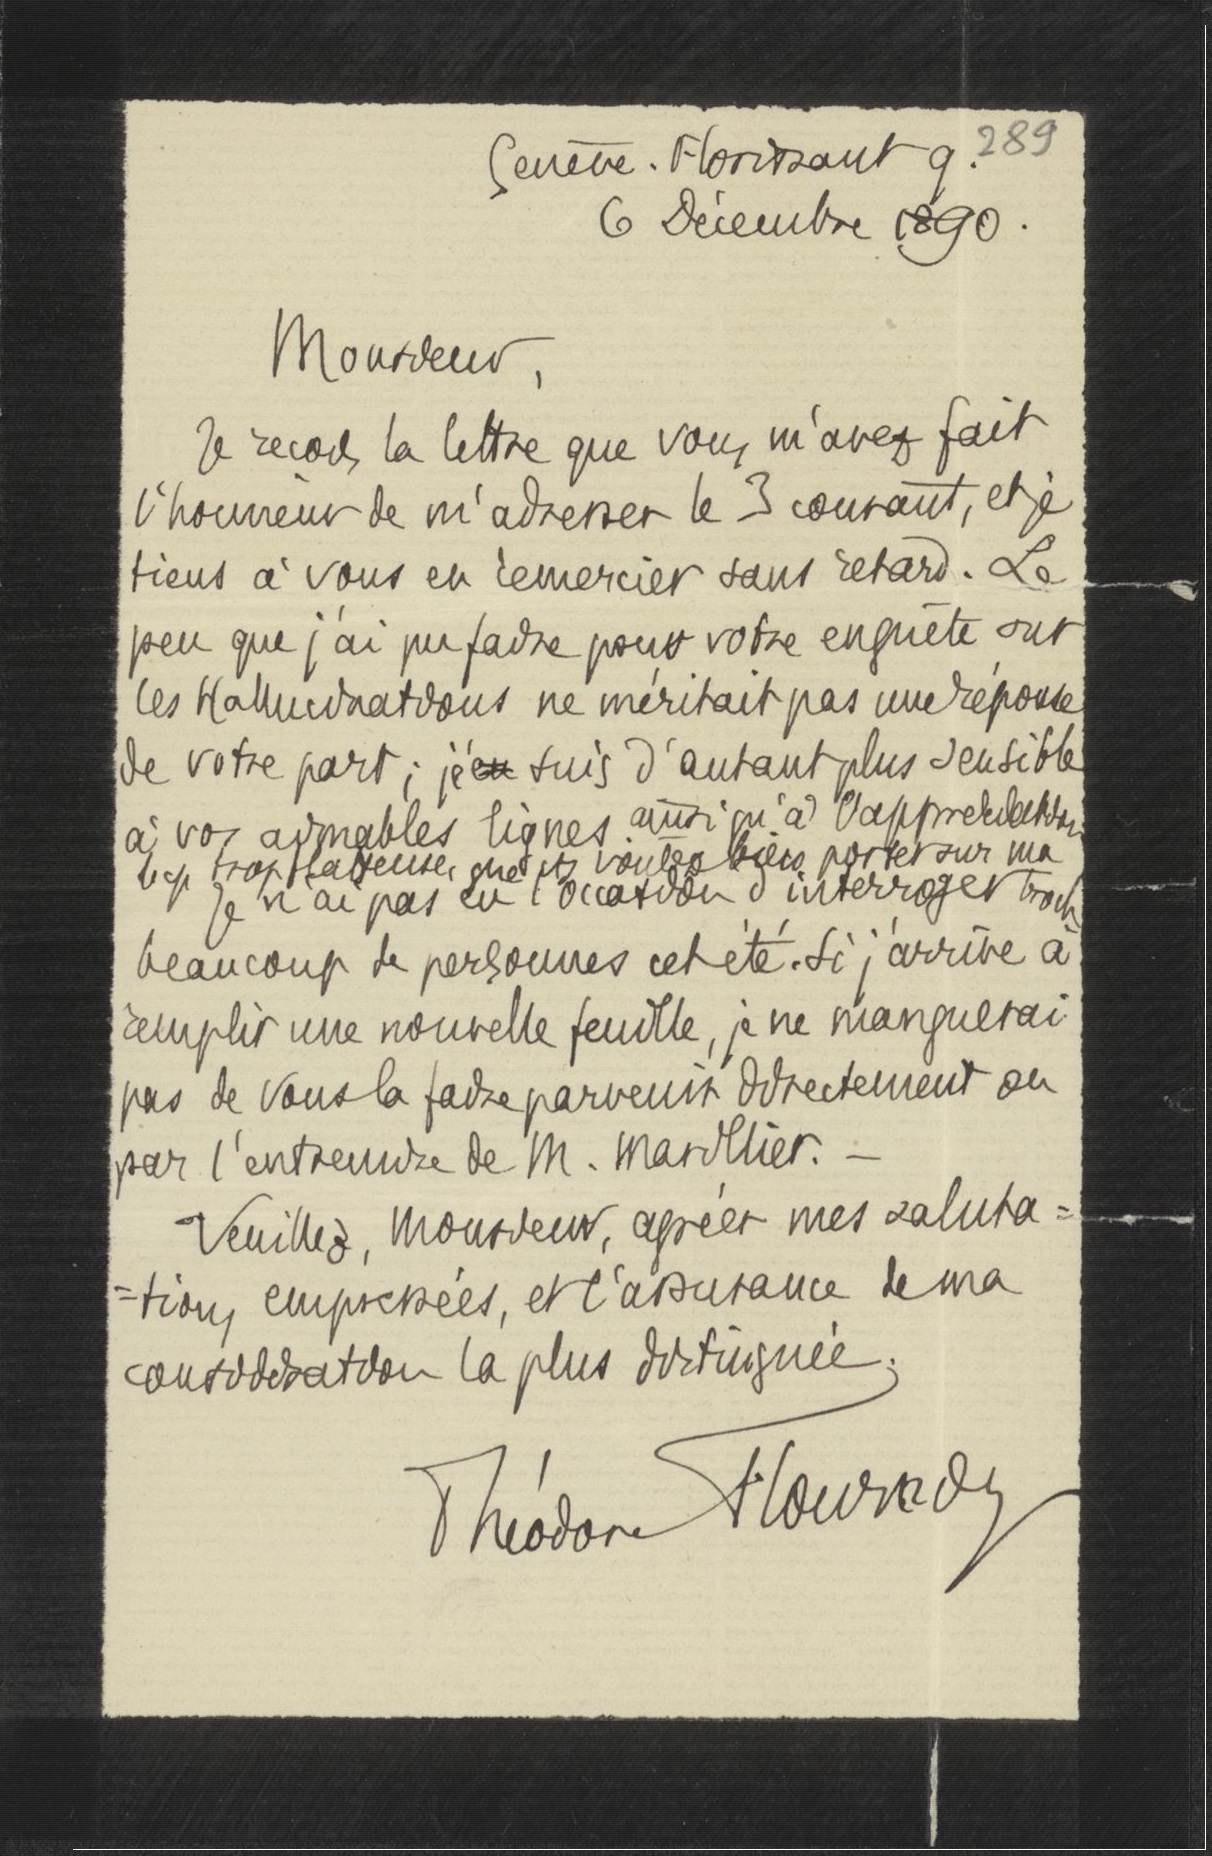 289
Genève. Florissant 9.
6 Décembre 1890.
Monsieur,
Je reçois la lettre que vous m'avez fait
l'honneur de m'adresser le 3 courant, et je
tiens à vous en remercier sans retard. Le
peu que j'ai pu faire pour votre enquête sur
les Hallucinations ne méritait pas une réponse
de votre part ; j'en suis d'autant plus sensible
à vos aimables lignes ainsi qu'à l'appréciation
bcp trop flatteuse, que vs voulez bien porter sur ma
broch.
Je n'ai pas eu l'occasion d'interroger
beaucoup de personnes cet été. Si j'arrive à
remplir une nouvelle feuille, je ne manquerai
pas de vous la faire parvenir directement ou
par l'entremise de M. Marillier. —
Veuillez, Monsieur, agréer mes saluta=
=tions empressées, et l'assurance de ma
considération la plus distinguée.
Théodore Flournoy